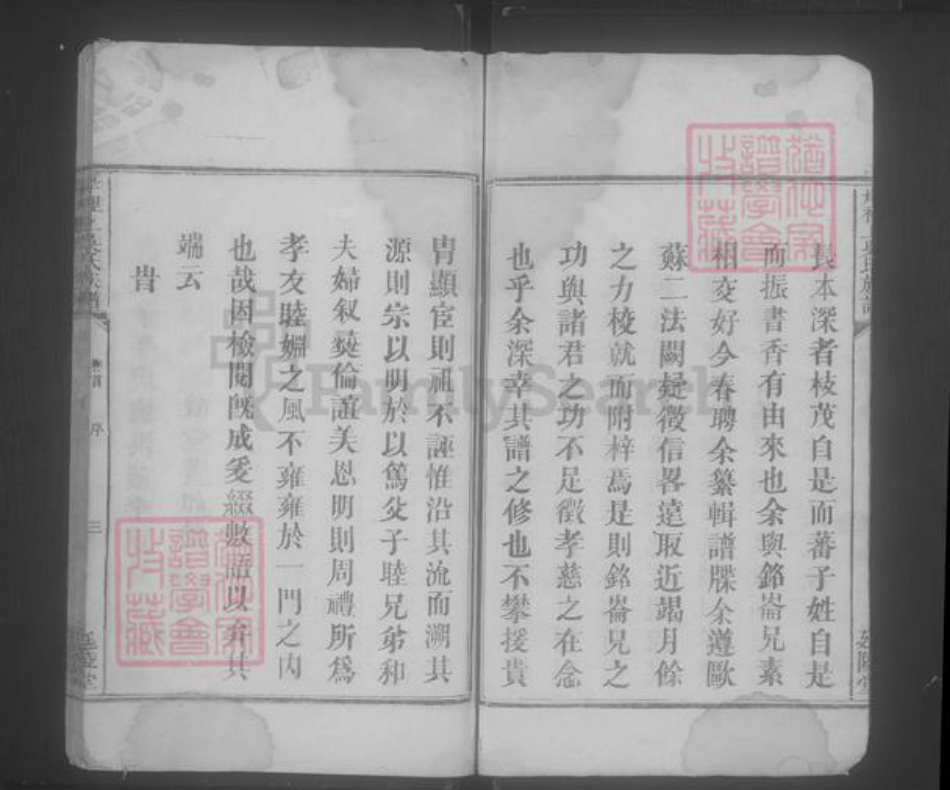 長本深者枝茂自是而蕃子姓自是
而振書香有由來也余與銘崙兄素
相交好今春聘余纂輯譜牒余遵歐
蘇二法闕疑徵信畧遠取近竭月餘
之力梭就而附梓焉是則銘崙兄之
功與諸君之功不足徵孝慈之在念
也乎余深幸其譜之修也不攀援貴
冑顯宦則祖不誣惟沿其流而溯其
源則宗以明於以篤父子睦兄弟和
夫婦叙彝倫誼美恩明則周禮所爲
孝友睦婣之風不雍雍於一門之内
也哉因檢閱既成爰綴數語以弁其
端云
旹
序
三
猶他家
譜學會
收藏
猶他家
譜學會
收藏
FamilySearch